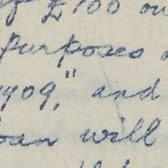 £100 ou
purposes
1909," and
oan will